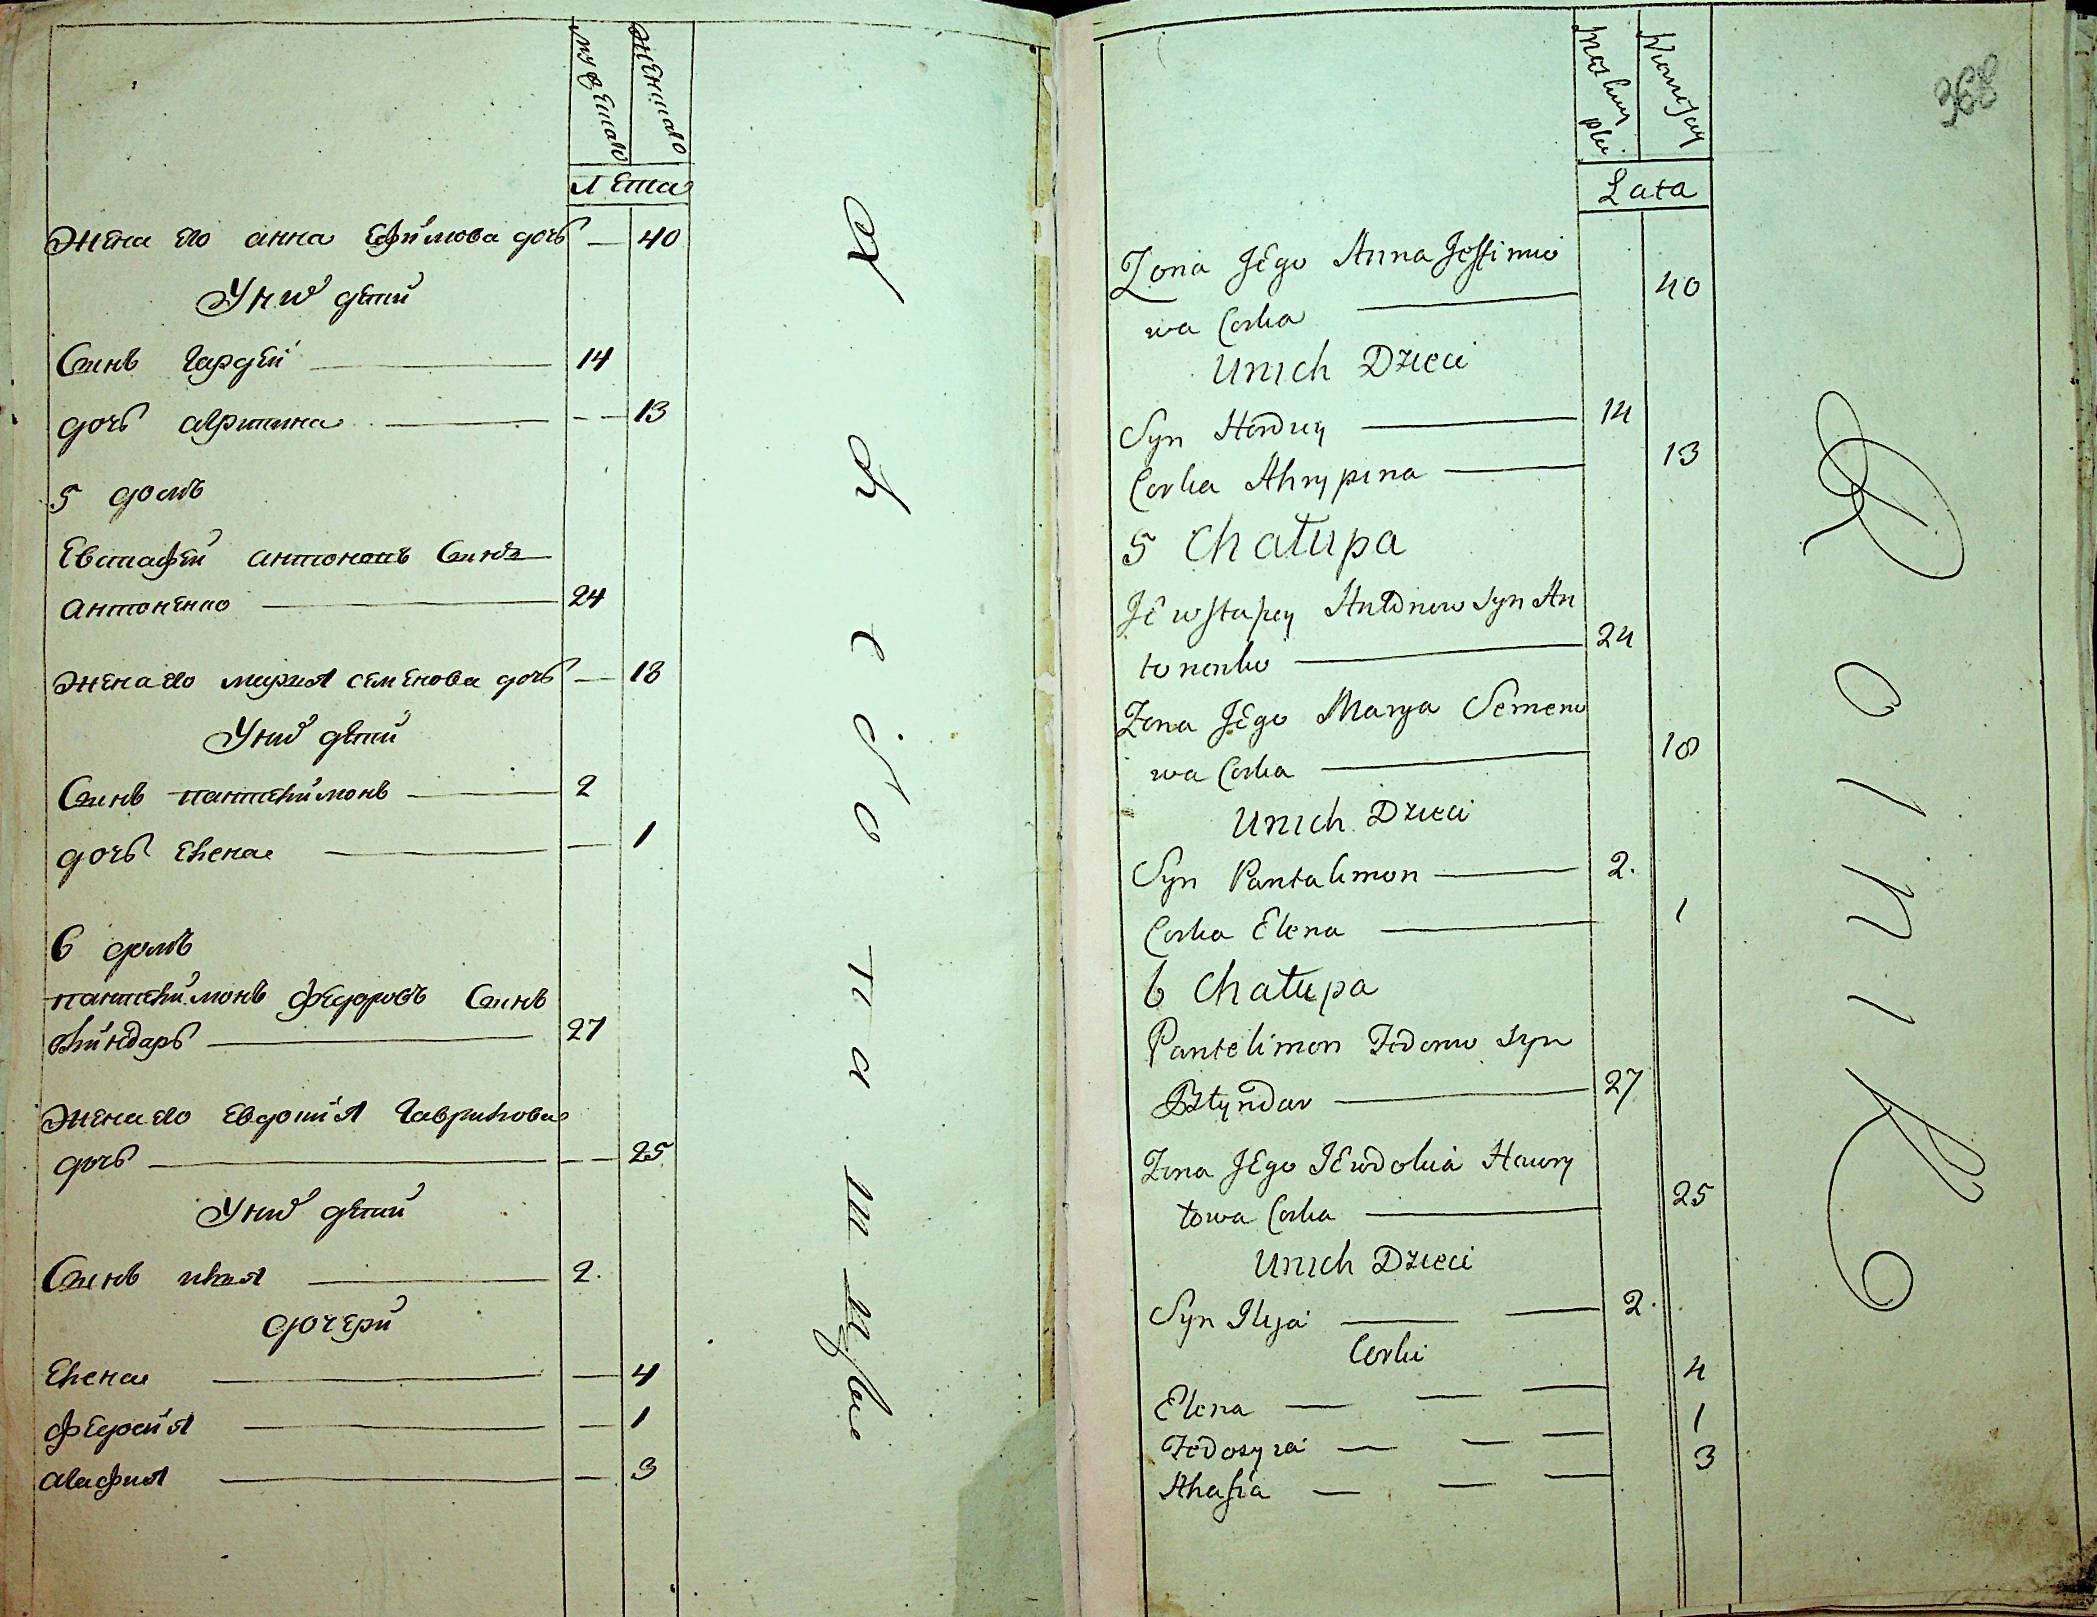 мужеска
женска
Лета
Жена его анна Ефимова дочь — 40
У них дети
Синъ Гардей 14
дочь агрипина — 13
5 домъ
Евстафей антоновъ Синъ
антоненко 24
Жена его мария семенова дочь — 18
У них дети
Синъ пантелимонъ 2
дочь елена — 1
6 домъ
пантелимонъ федоровъ Синъ
блиндарь 27
Жена его Евдокия Гаврилова
дочь — 25
У них дети
Синъ илия 2.
дочери
елена — 4
федосия — 1
агафия — 3
368
Lata
Zona Jego Anna Jeffimio
wa Corka 40
Unich Dzieci
Syn Hordiey 14
Corka Ahrypina 13
5 Chałupa
Jewstafiey Antonow Syn An
tonenko 24
Zona Jego Marya Semeno
wa Corka 18
Unich Dzieci
Syn Pantalimon 2.
Corka Elena 1
6 Chałupa
Pantelimon Fedorow Syn
Błyndar 27
Zona Jego Jewdokia Hawry
łowa Corka 25
Unich Dzieci
Syn Ilija 2.
Corki
Elena 4
Fedosyia 1
Ahafia 3